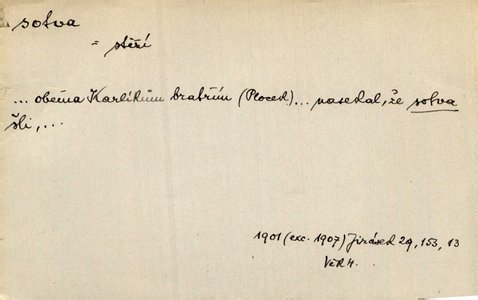 sotva
= stěží
... oběma Karlíkům bratrům (Plocek)... nasekal, že sotva
šli, ...
1901 (exc. 1907) Jirásek 29, 153, 13